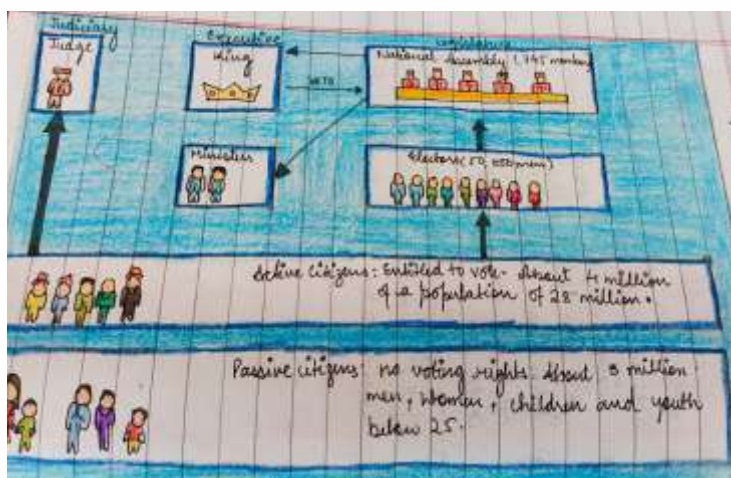 Judiciary
Judge
Executive
King
Legislature
National Assembly (745 members)
VETO
Ministers
Electors (50,000 men)
Active citizens: Entitled to vote. About 4 million
of a population of 28 million.
Passive citizens: no voting rights. About 3 million
men, women, children and youth
below 25.